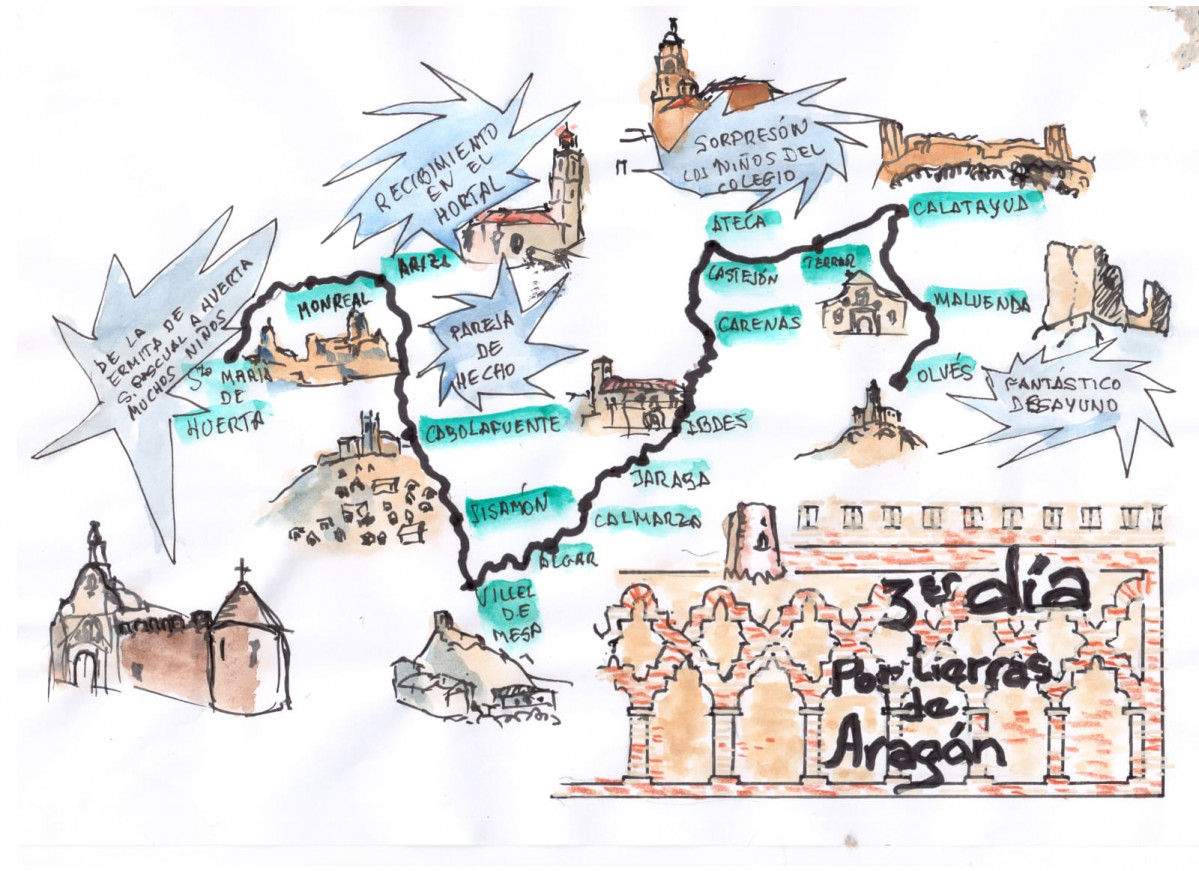 RECIBIMIENTO
EN EL
HORTAL
SORPRESÓN
LOS NIÑOS DEL
COLEGIO
CALATAYUD
ATECA
TERRER
ARIZA
CASTEJÓN
MONREAL
MALUENDA
CARENAS
DE LA
ERMITA DE
S. PASCUAL A HUERTA
MUCHOS NIÑOS
PAREJA
DE
HECHO
Sta MARÍA
DE
HUERTA
OLVÉS
FANTÁSTICO
DESAYUNO
CABOLAFUENTE
IBDES
JARABA
SISAMÓN
CALMARZA
ALGAR
VILLEL
DE
MESA
3er día
Por tierras
de
Aragón